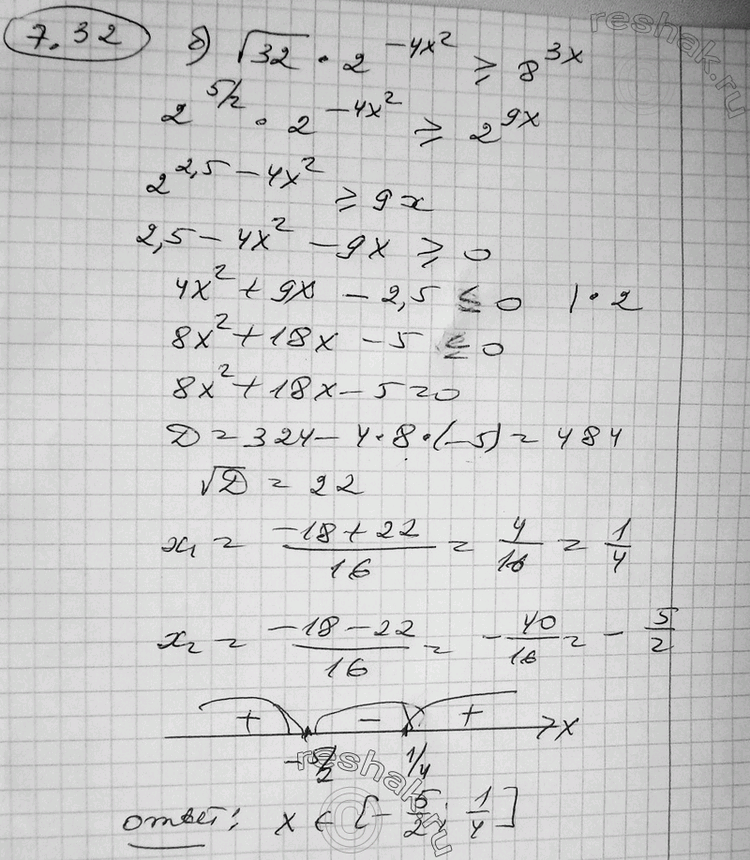 7.32 б) √32 · 2^(-4x²) ≥ 8^(3x)
2^(5/2) · 2^(-4x²) ≥ 2^(9x)
2^(2,5 - 4x²) ≥ 9x
2,5 - 4x² - 9x ≥ 0
4x² + 9x - 2,5 ≤ 0 | · 2
8x² + 18x - 5 ≤ 0
8x² + 18x - 5 = 0
D = 324 - 4·8·(-5) = 484
√D = 22
x₁ = (-18 + 22)/16 = 4/16 = 1/4
x₂ = (-18 - 22)/16 = -40/16 = -5/2
+ - + x
-5/2 1/4
ответ: x ∈ [-5/2; 1/4]
reshak.ru
reshak.ru